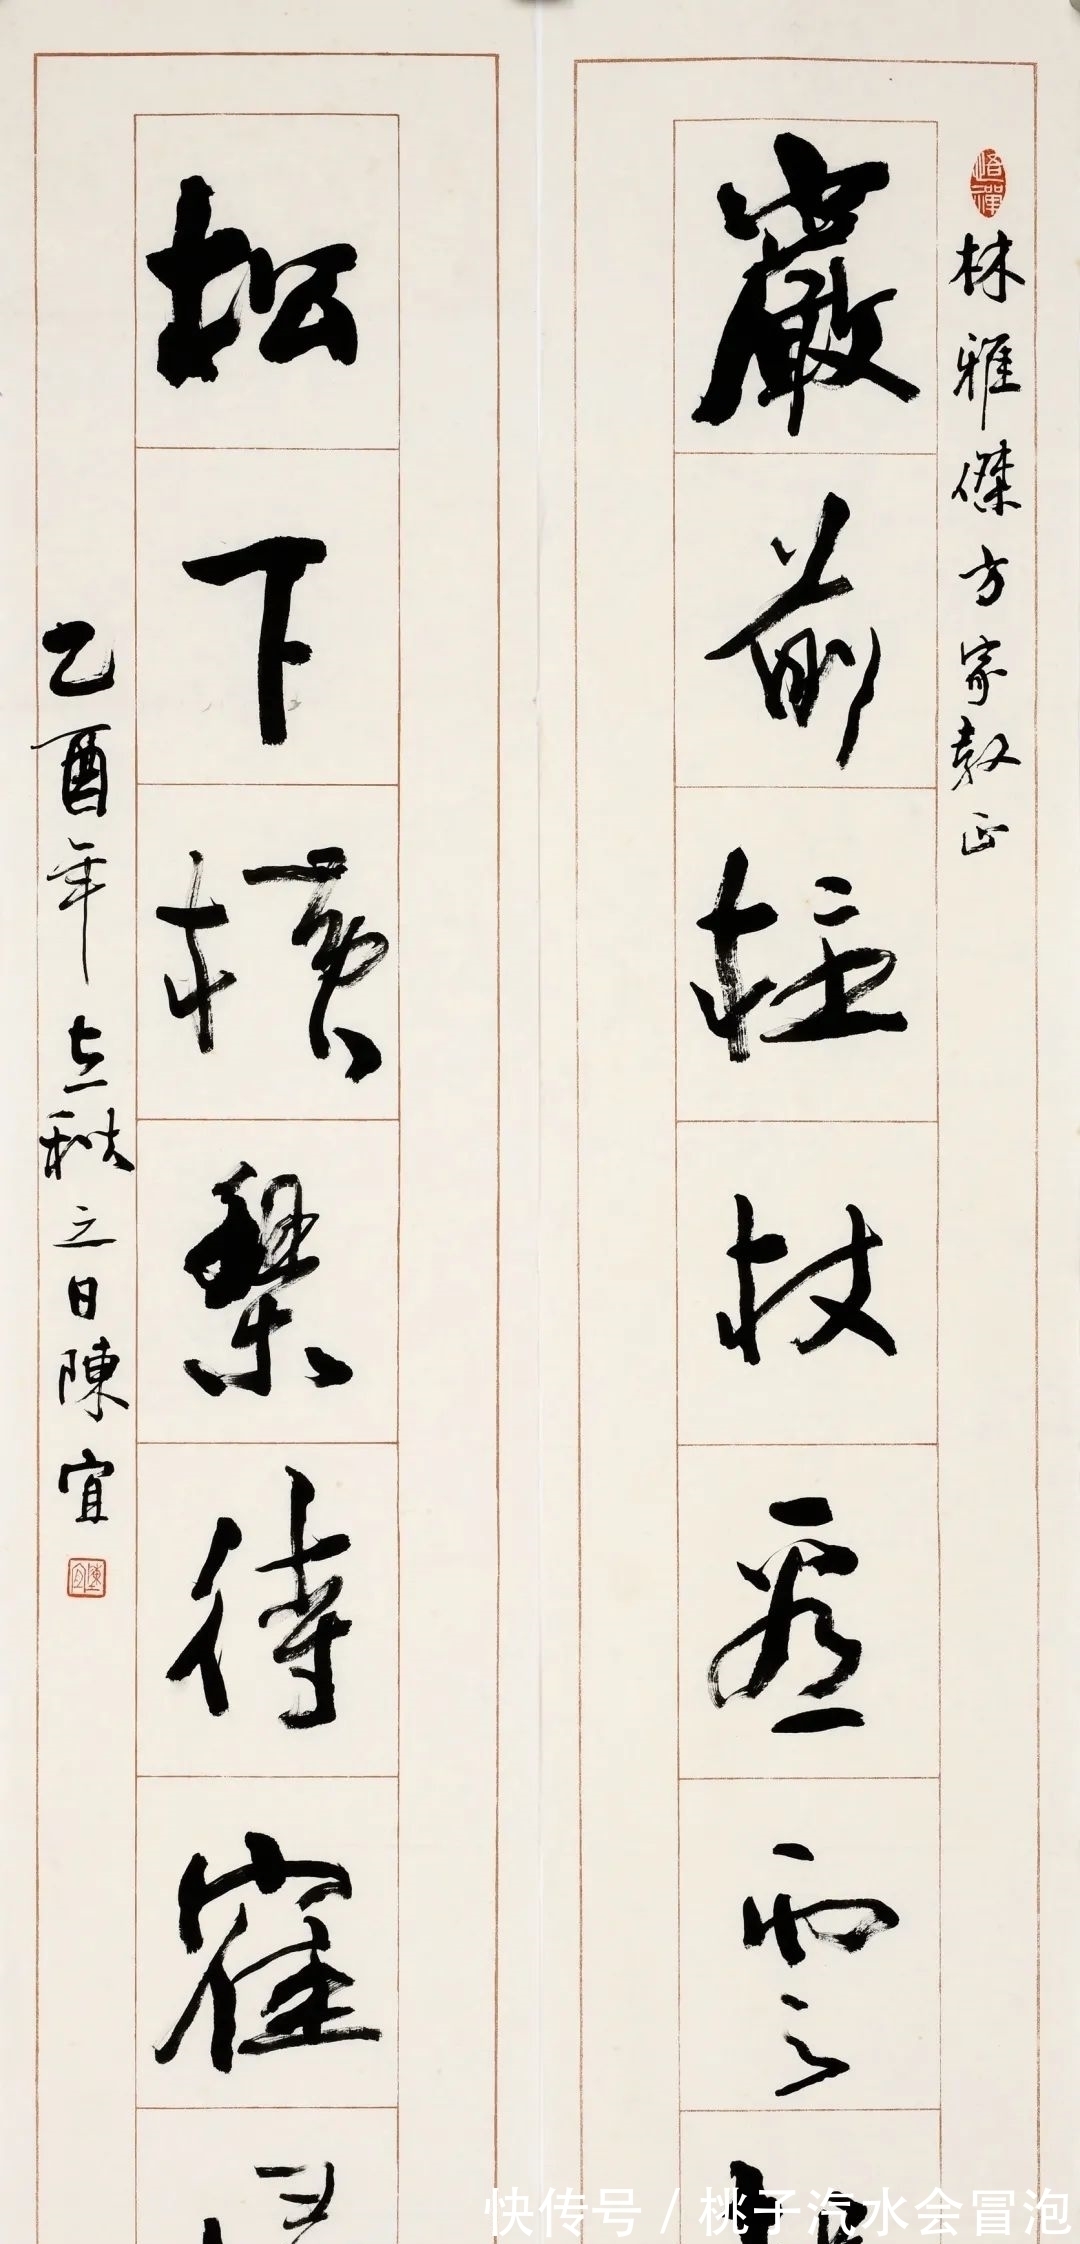 林雅傑方家教正
巖前拄杖看雲
松下橫琴待寉
乙酉年立秋之日陳宜
陳宜
快传号 / 桃子汽水会冒泡